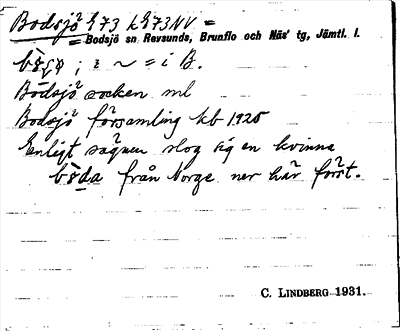 Bodsjö h73 k h73 NV =
= Bodsjö sn Revsunds, Brunflo och Näs' tg, Jämtl. l.
; ~ = i B.
Bodsjö socken ml
Bodsjö församling kb 1925
Enligt sägnen slog sig en kvinna
från Norge ner här först.
C. LINDBERG 1931.